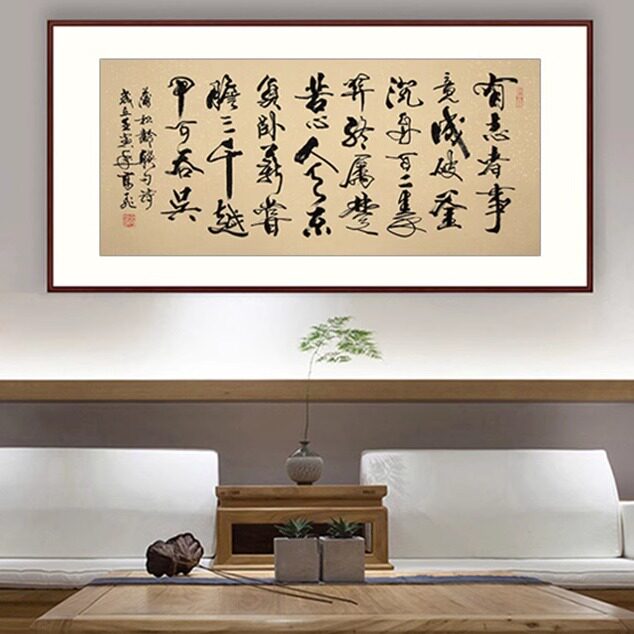 有志者事
竟成破釜
沉舟百二秦
关终属楚
苦心人天不
負卧薪嘗
膽三千越
甲可吞吴
蒲松龄联句诗